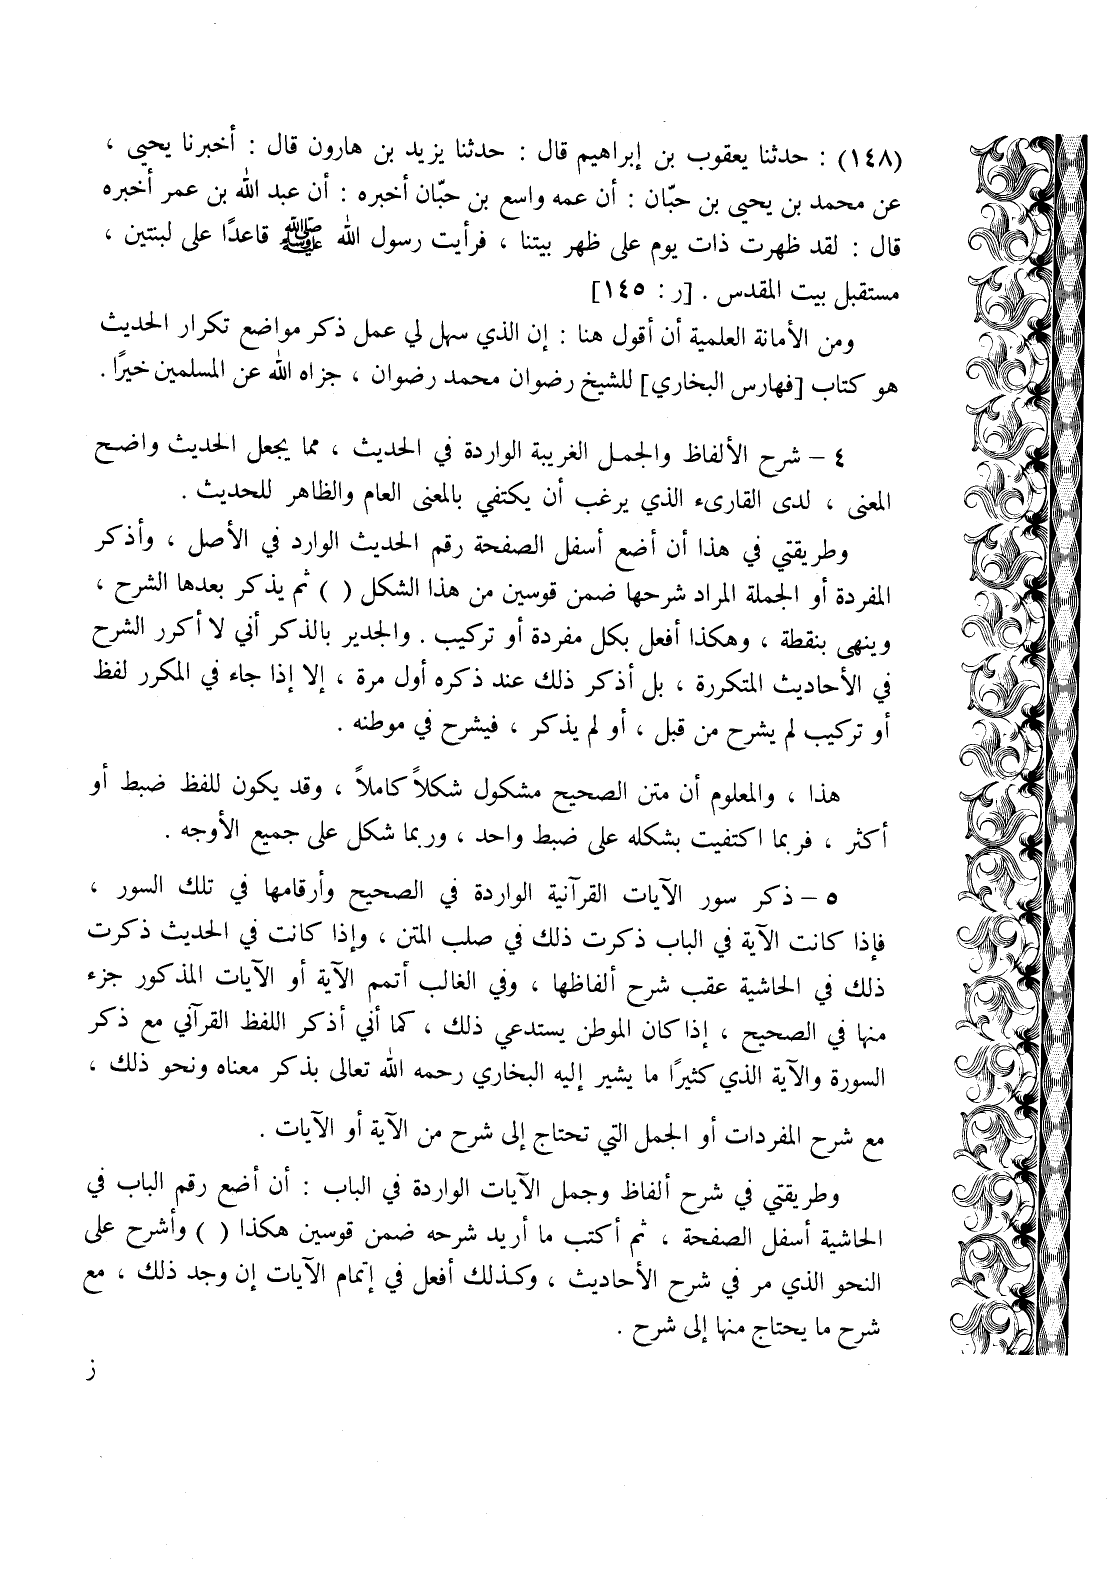 (١٤٨) : حدثنا يعقوب بن إبراهيم قال : حدثنا يزيد بن هارون قال : أخبرنا يحيى ،
عن محمد بن يحيى بن حبّان : أن عمه واسع بن حبّان أخبره : أن عبد الله بن عمر أخبره
قال : لقد ظهرت ذات يوم على ظهر بيتنا ، فرأيت رسول الله ﷺ قاعدًا على لبنتين ،
مستقبل بيت المقدس . [ر : ١٤٥]
ومن الأمانة العلمية أن أقول هنا : إن الذي سهل لي عمل ذكر مواضع تكرار الحديث
هو كتاب [فهارس البخاري] للشيخ رضوان محمد رضوان ، جزاه الله عن المسلمين خيرًا .
٤ – شرح الألفاظ والجمل الغريبة الواردة في الحديث ، مما يجعل الحديث واضح
المعنى ، لدى القارىء الذي يرغب أن يكتفي بالمعنى العام والظاهر للحديث .
وطريقتي في هذا أن أضع أسفل الصفحة رقم الحديث الوارد في الأصل ، وأذكر
المفردة أو الجملة المراد شرحها ضمن قوسين من هذا الشكل ( ) ثم يذكر بعدها الشرح ،
وينهى بنقطة ، وهكذا أفعل بكل مفردة أو تركيب . والجدير بالذكر أني لا أكرر الشرح
في الأحاديث المتكررة ، بل أذكر ذلك عند ذكره أول مرة ، إلا إذا جاء في المكرر لفظ
أو تركيب لم يشرح من قبل ، أو لم يذكر ، فيشرح في موطنه .
هذا ، والمعلوم أن متن الصحيح مشكول شكلاً كاملاً ، وقد يكون للفظ ضبط أو
أكثر ، فربما اكتفيت بشكله على ضبط واحد ، وربما شكل على جميع الأوجه .
٥ – ذكر سور الآيات القرآنية الواردة في الصحيح وأرقامها في تلك السور ،
فإذا كانت الآية في الباب ذكرت ذلك في صلب المتن ، وإذا كانت في الحديث ذكرت
ذلك في الحاشية عقب شرح ألفاظها ، وفي الغالب أتمم الآية أو الآيات المذكور جزء
منها في الصحيح ، إذا كان الموطن يستدعي ذلك ، كما أني أذكر اللفظ القرآني مع ذكر
السورة والآية الذي كثيرًا ما يشير إليه البخاري رحمه الله تعالى بذكر معناه ونحو ذلك ،
مع شرح المفردات أو الجمل التي تحتاج إلى شرح من الآية أو الآيات .
وطريقتي في شرح ألفاظ وجمل الآيات الواردة في الباب : أن أضع رقم الباب في
الحاشية أسفل الصفحة ، ثم أكتب ما أريد شرحه ضمن قوسين هكذا ( ) وأشرح على
النحو الذي مر في شرح الأحاديث ، وكذلك أفعل في إتمام الآيات إن وجد ذلك ، مع
شرح ما يحتاج منها إلى شرح .
ز